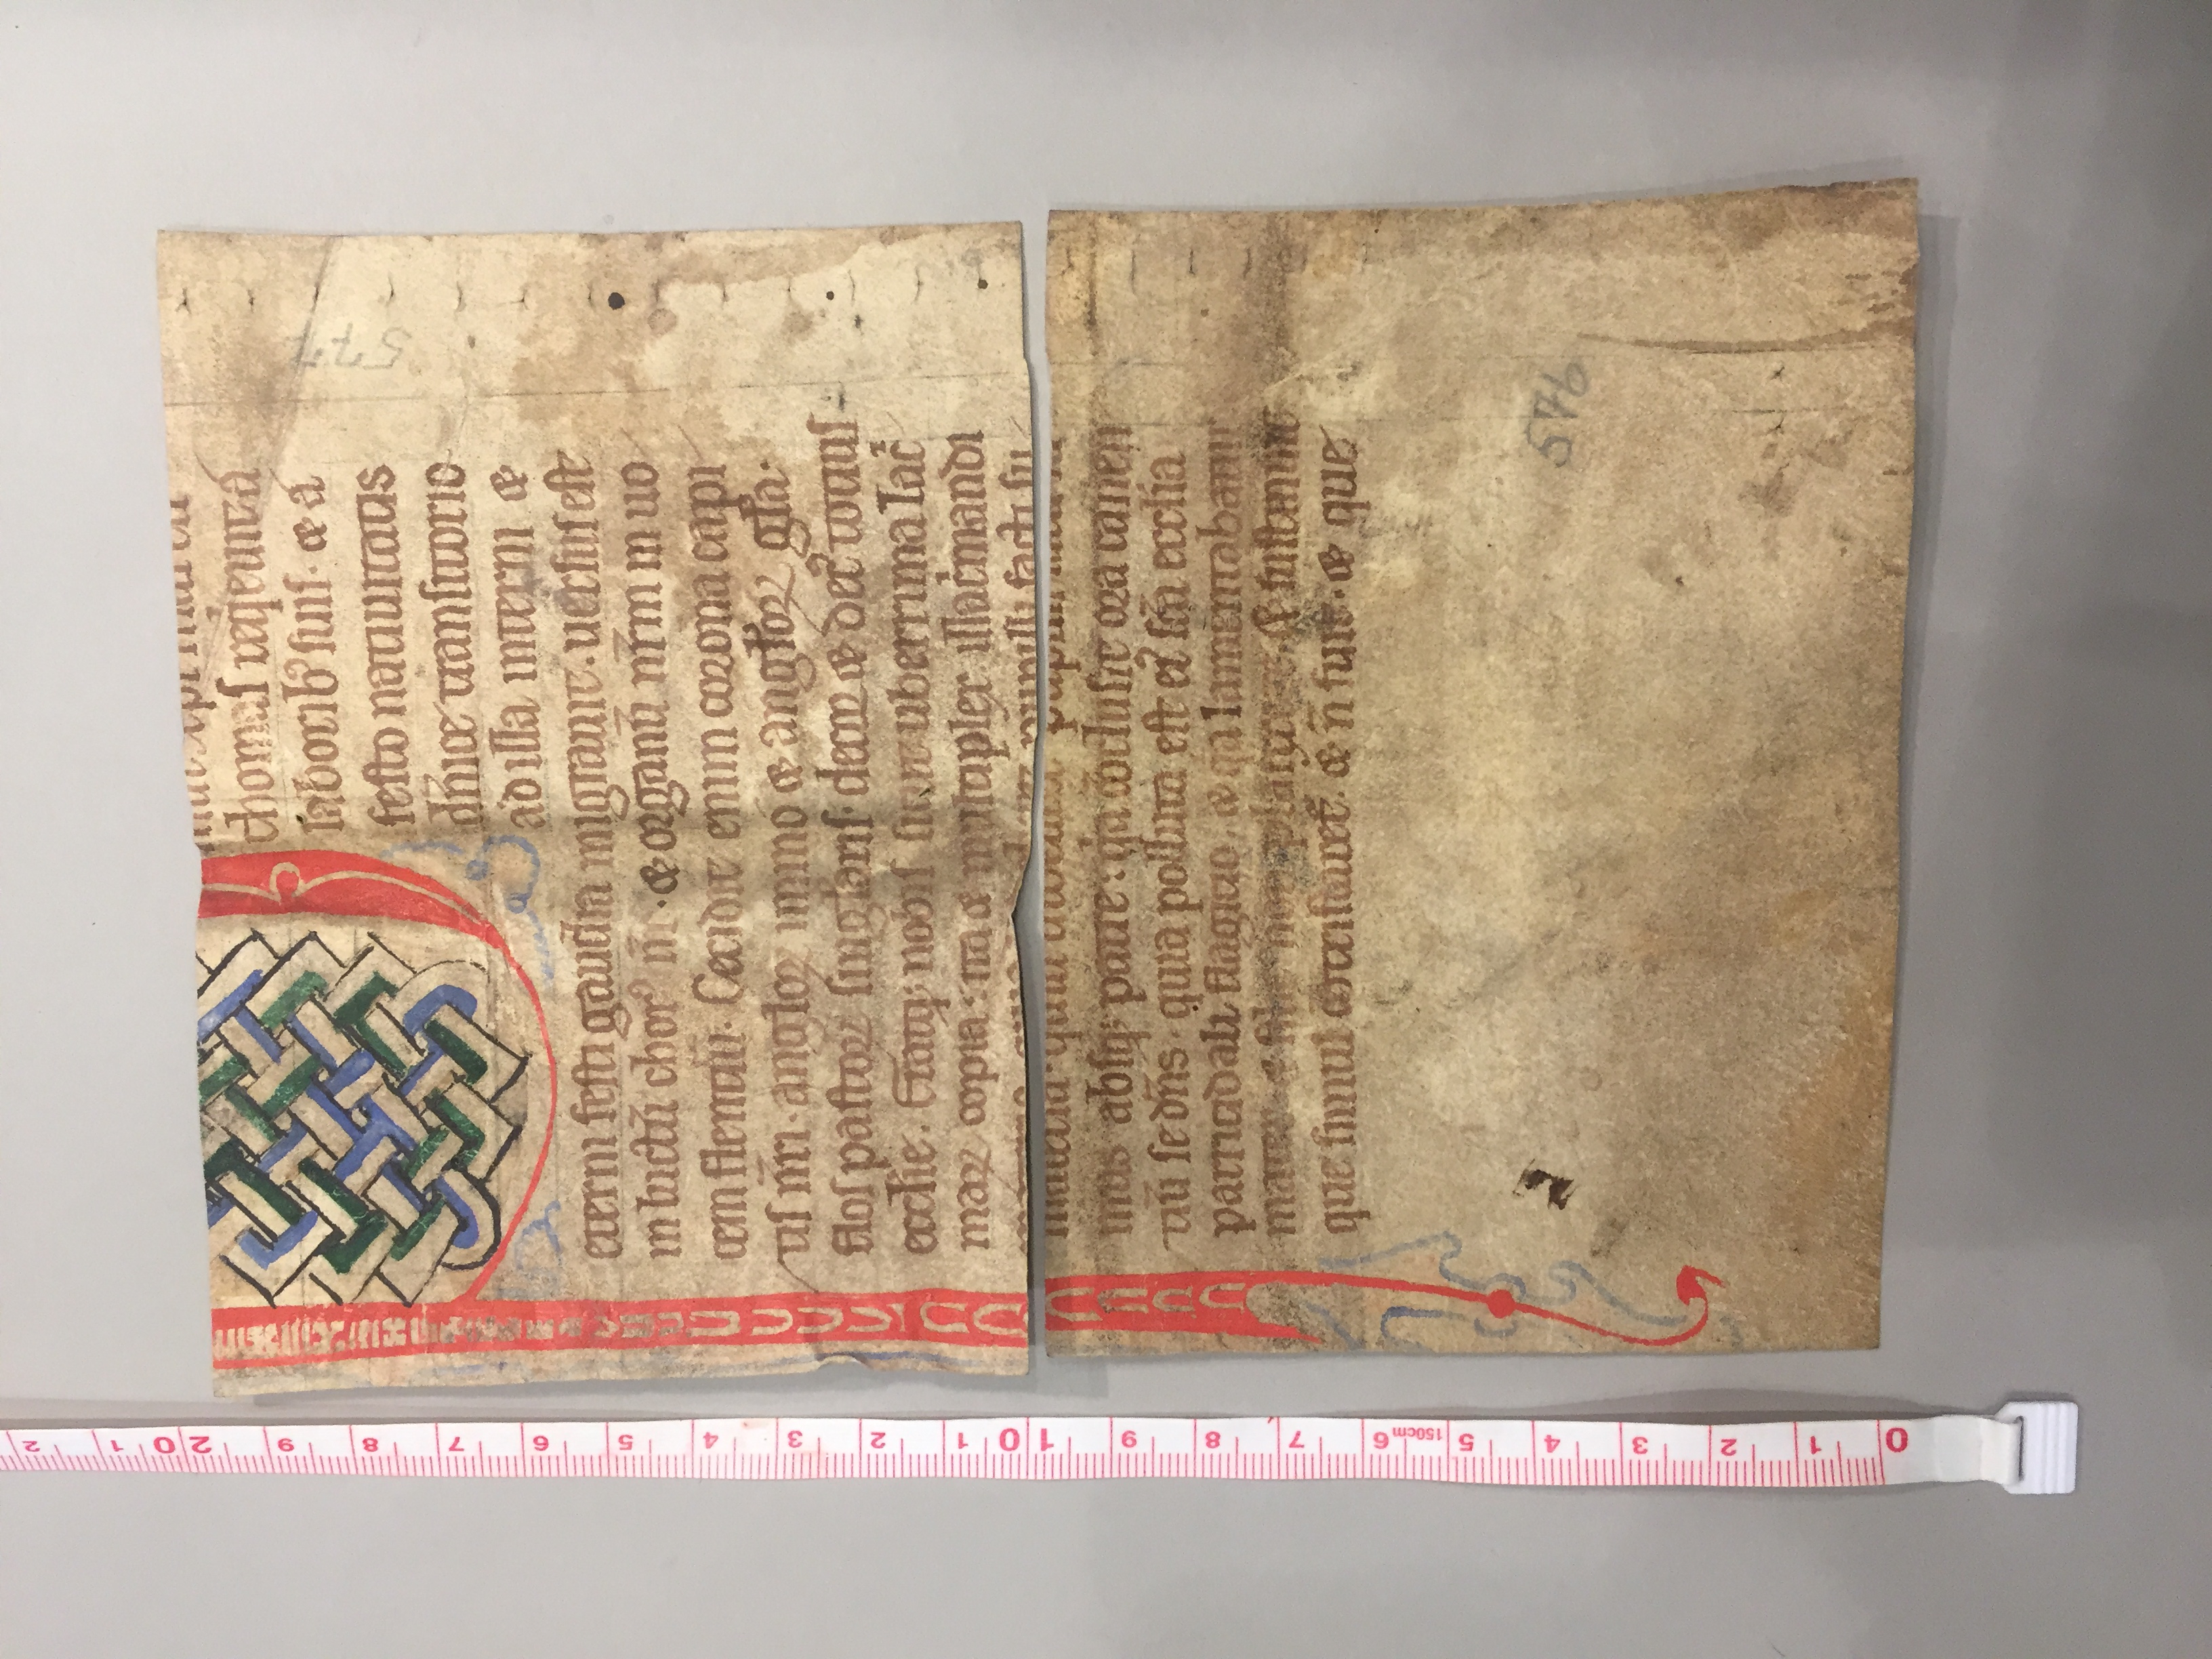 xpi
thomas reqͥeuit a
laboribꝰ suis · ⁊ a
festo natiuitatis
dn̄ice transitorio
ad illa interni ⁊
eterni festi gaudia migrauit . uersus est
in luctū chorꝰ nr̄ · ⁊ organū nr̄m in uo
cem flentiū · Cecidit enim corona capi
tis nr̄i · angloꝝ immo ⁊ angl̓oꝝ gl̓a ·
flos pastoꝝ singl̓aris · decor ⁊ decꝰ totius
eccl̓ie . Eratqꝫ nobis sicut uberrima lac̓
maꝝ copia : ita ⁊ multiplex illac̓mandi
materia · quia pupilli facti su
mus absqꝫ patre : qͥa cōclusit ora canen
tiū se dn̄s · quia polluta est eiꝰ sc̄a eccl̓ia
patricidali flagitio . ⁊ qͥa lamentabatur
mater ⁊ non ⁊ sustinuit
que simul cōtristaret̓ . ⁊ n̄ fuit . ⁊ que
577
576
0
1
2
3
4
5
150cm
6
7
8
9
10
1
2
3
4
5
6
7
8
9
20
1
2